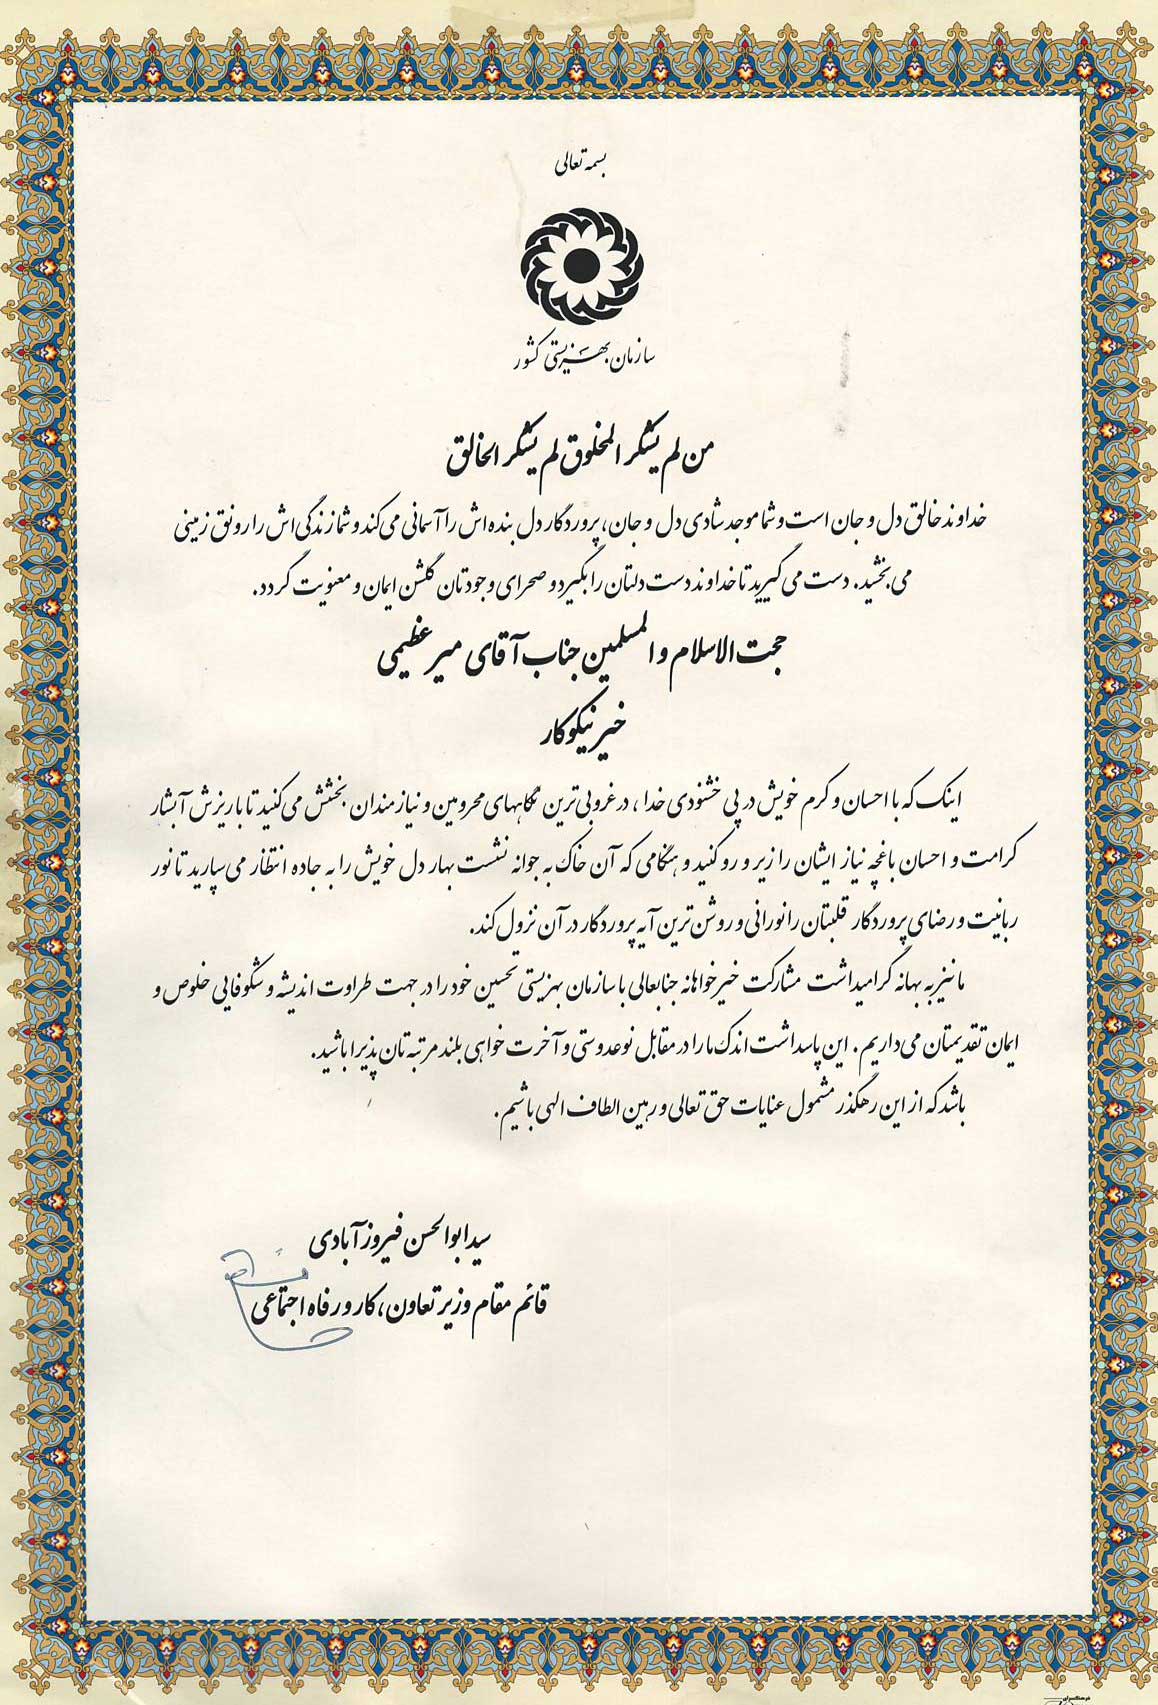 بسمه تعالی
سازمان بهزیستی کشور
من لم یشکر المخلوق لم یشکر الخالق
خداوند خالق دل و جان است و شما موجد شادی دل و جان، پروردگار دل بنده اش را آسمانی می کند و شما زندگی اش را رونق زمینی
می بخشید. دست می گیرید تا خداوند دست دلتان را بگیرد و صحرای وجودتان گلشن ایمان و معنویت گردد.
حجت الاسلام و المسلمین جناب آقای میر عظیمی
خیر نیکوکار
اینک که با احسان و کرم خویش در پی خشنودی خدا، در غروبی ترین نگاههای محرومین و نیازمندان بخشش می کنید تا با ریزش آبشار
کرامت و احسان باغچه نیاز ایشان را زیر و رو کنید و هنگامی که آن خاک به جوانه نشست بهار دل خویش را به جاده انتظار می سپارید تا نور
ربانیت و رضای پروردگار قلبتان را نورانی و روشن ترین آیه پروردگار در آن نزول کند.
ما نیز به بهانه گرامیداشت مشارکت خیرخواهانه جنابعالی با سازمان بهزیستی تحسین خود را در جهت طراوت اندیشه و شکوفایی خلوص و
ایمان تقدیمتان می داریم. این پاسداشت اندک ما را در مقابل نوعدوستی و آخرت خواهی بلند مرتبه تان پذیرا باشید.
باشد که از این رهگذر مشمول عنایات حق تعالی و رهین الطاف الهی باشیم.
سید ابوالحسن فیروزآبادی
قائم مقام وزیر تعاون، کار و رفاه اجتماعی